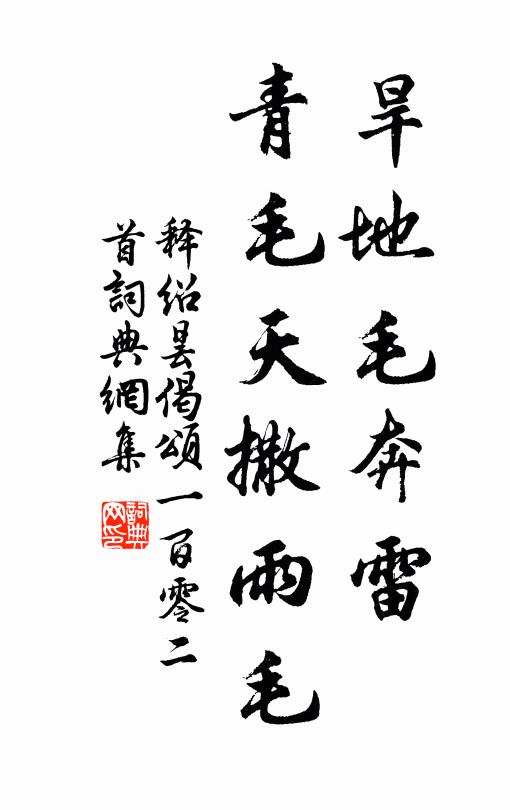 旱地毛奔雷
青毛天撒雨毛
释绍昙偈颂一百零二
首詞典網集
詞典
网印